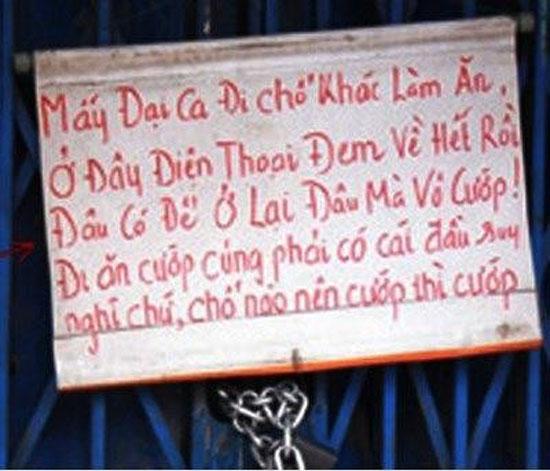 Mấy Đại Ca Đi chỗ Khác Làm Ăn,
Ở Đây Điện Thoại Đem Về Hết Rồi
Đâu Có Để Ở Lại Đâu Mà Vô Cướp!
Đi ăn cướp cũng phải có cái đầu suy
nghĩ chứ, chỗ nào nên cướp thì cướp